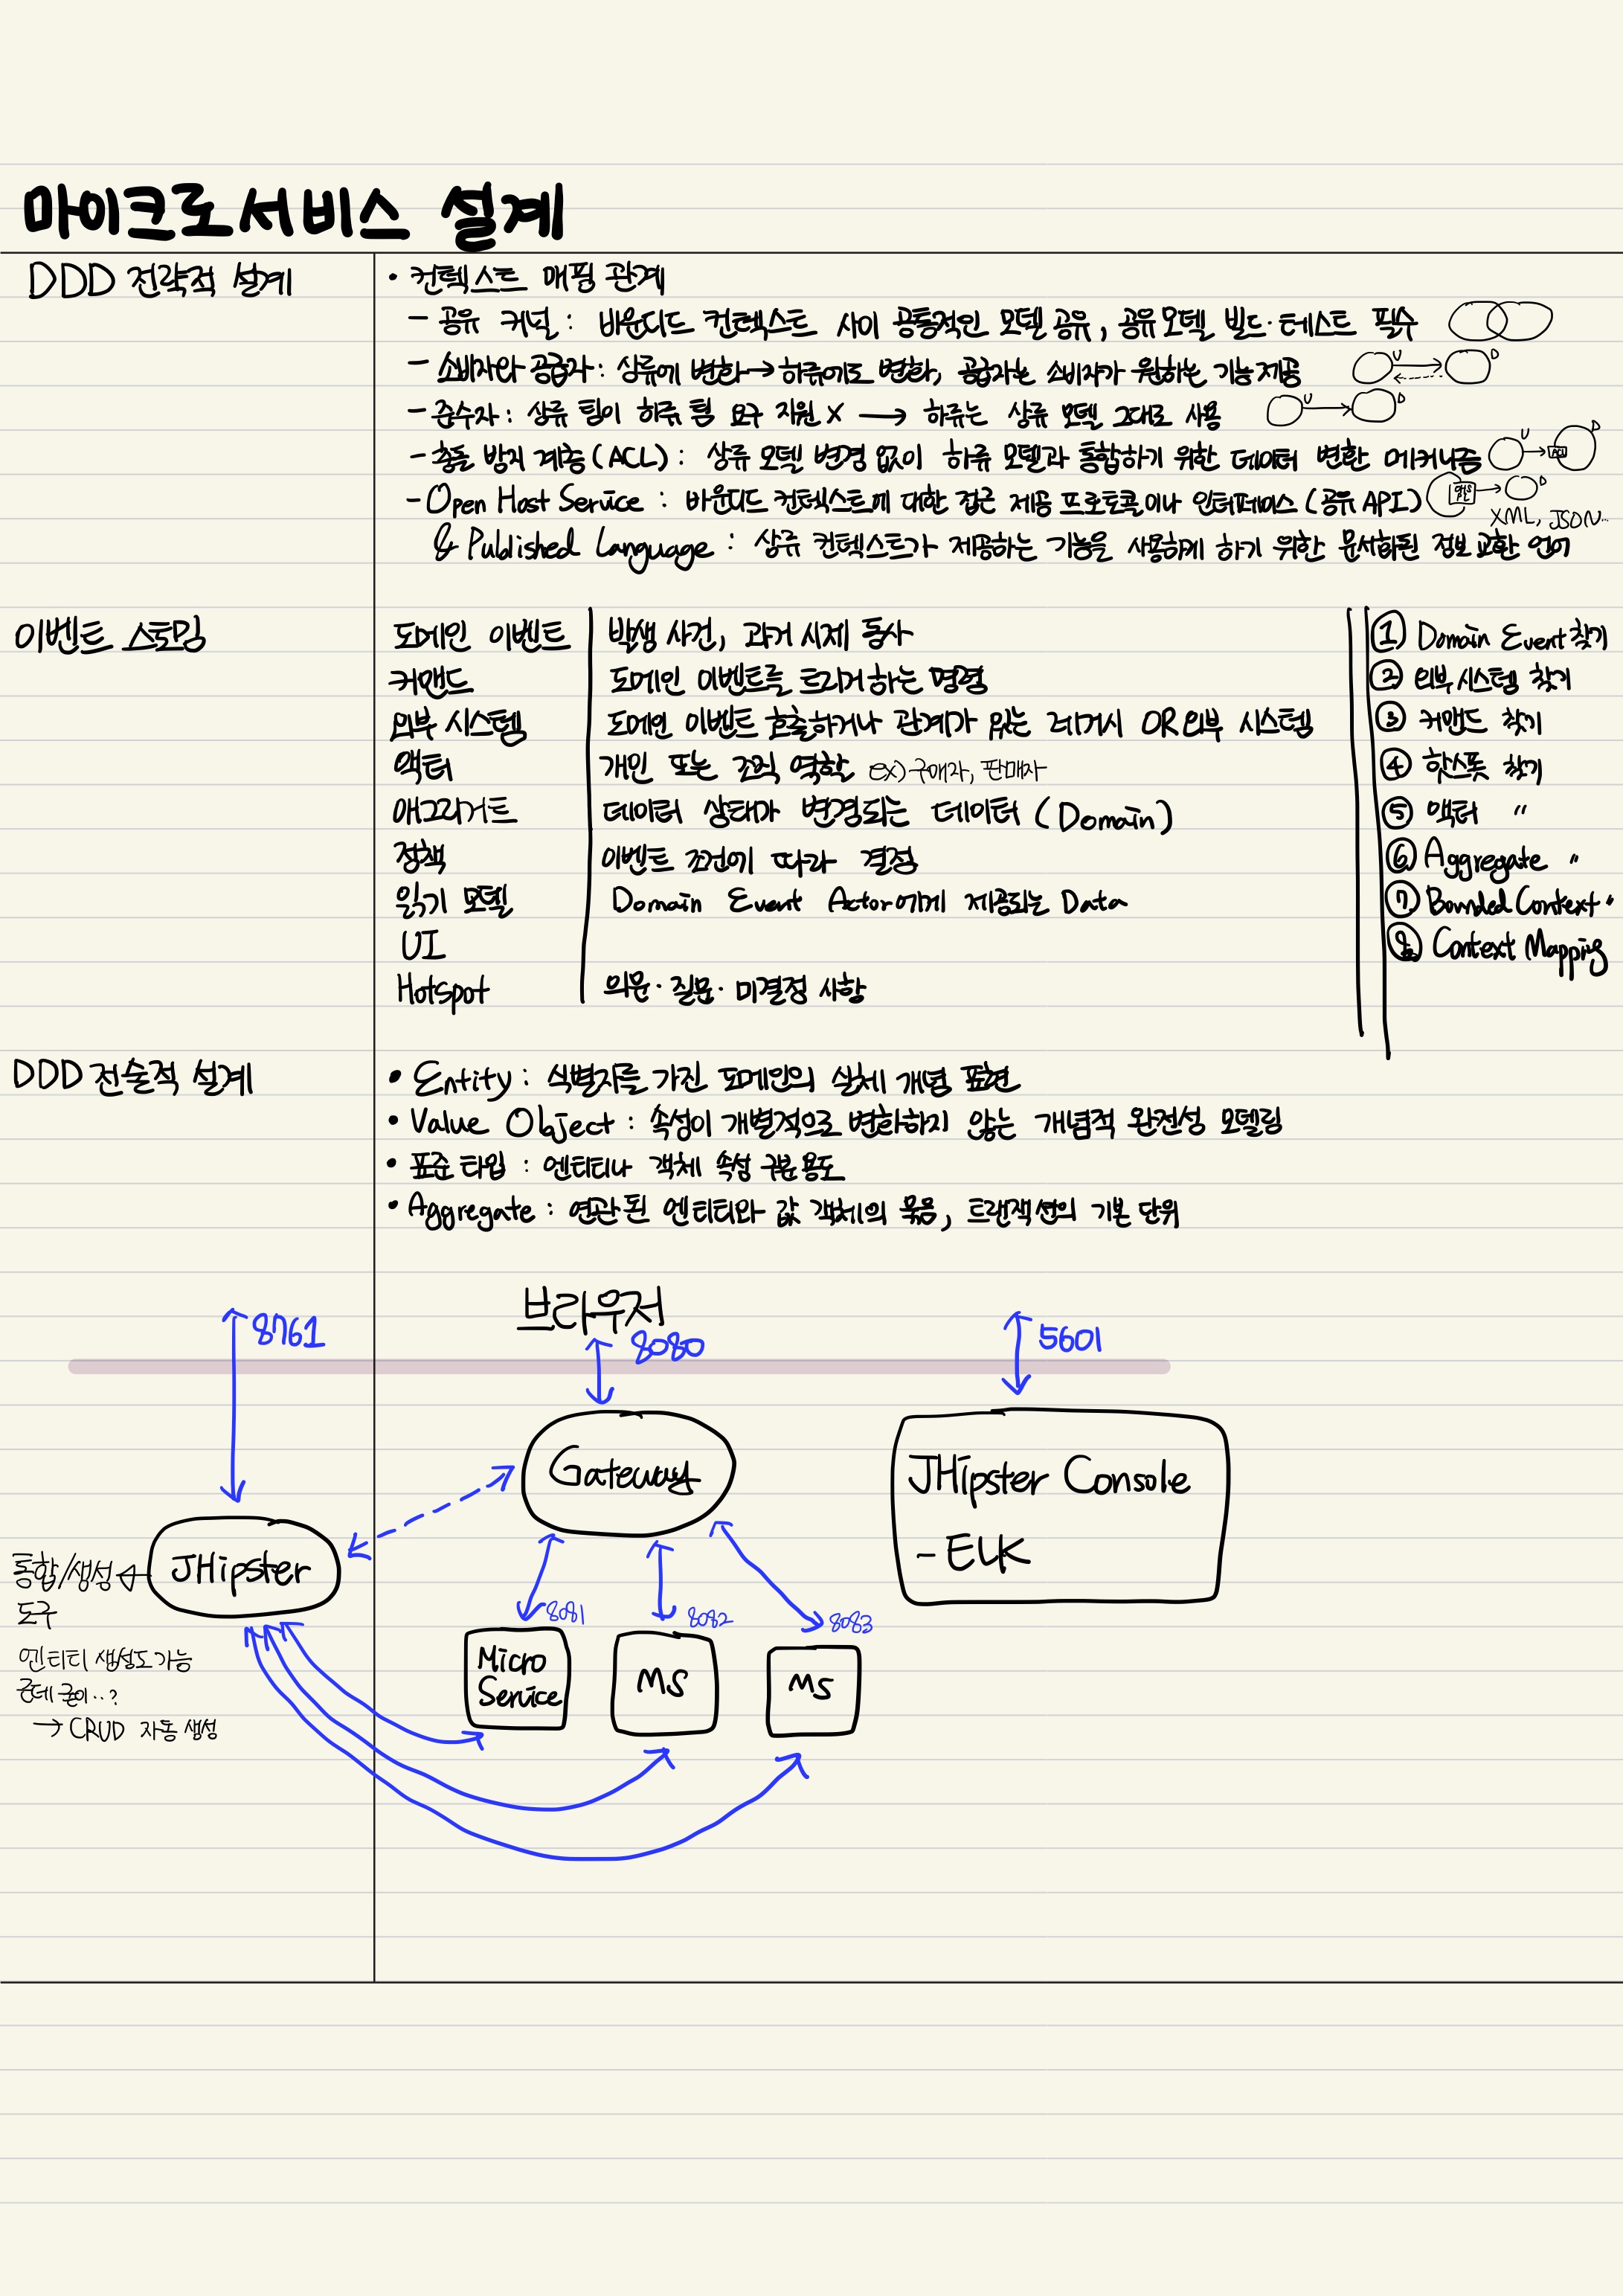 마이크로서비스 설계
DDD 전략적 설계
• 컨텍스트 매핑 관계
- 공유 커널 : 바운디드 컨텍스트 사이 공통적인 모델 공유, 공유모델 빌드·테스트 필수
- 소비자와 공급자 : 상류에 변화→하류에도 변화, 공급자는 소비자가 원하는 기능제공
U D
- 준수자 : 상류 팀이 하류 팀 요구 지원 X → 하류는 상류 모델 그대로 사용
U D
- 충돌 방지 계층 (ACL) : 상류 모델 변경 없이 하류 모델과 통합하기 위한 데이터 변환 메커니즘
U ACL D
- Open Host Service : 바운디드 컨텍스트에 대한 접근 제공 프로토콜이나 인터페이스 (공유 API)
OHS PL D
XML, JSON..
& Published Language : 상류 컨텍스트가 제공하는 기능을 사용하게 하기 위한 문서화된 정보 교환 언어
이벤트 스토밍
도메인 이벤트 발생 사건, 과거 시제 동사
커맨드 도메인 이벤트를 트리거하는 명령
외부 시스템 도메인 이벤트 호출하거나 관계가 있는 레거시 OR 외부 시스템
액터 개인 또는 조직 역할 ex) 구매자, 판매자
애그리거트 데이터 상태가 변경되는 데이터 (Domain)
정책 이벤트 조건에 따라 결정
읽기 모델 Domain Event Actor에게 제공되는 Data
UI
Hotspot 의문·질문·미결정 사항
① Domain Event 찾기
② 외부 시스템 찾기
③ 커맨드 찾기
④ 핫스폿 찾기
⑤ 액터 〃
⑥ Aggregate 〃
⑦ Bounded Context 〃
⑧ Context Mapping
DDD 전술적 설계
• Entity : 식별자를 가진 도메인의 실체 개념 표현
• Value Object : 속성이 개별적으로 변화하지 않는 개념적 완전성 모델링
• 표준 타입 : 엔티티나 객체 속성 구분 용도
• Aggregate : 연관된 엔티티와 값 객체의 묶음, 트랜잭션의 기본 단위
브라우저
8761
8080
5601
Gateway
JHipster Console
- ELK
JHipster
통합/생성
도구
엔티티 생성도 가능
근데 굳이..?
→ CRUD 자동 생성
8081
8082
8083
Micro
Service
MS
MS